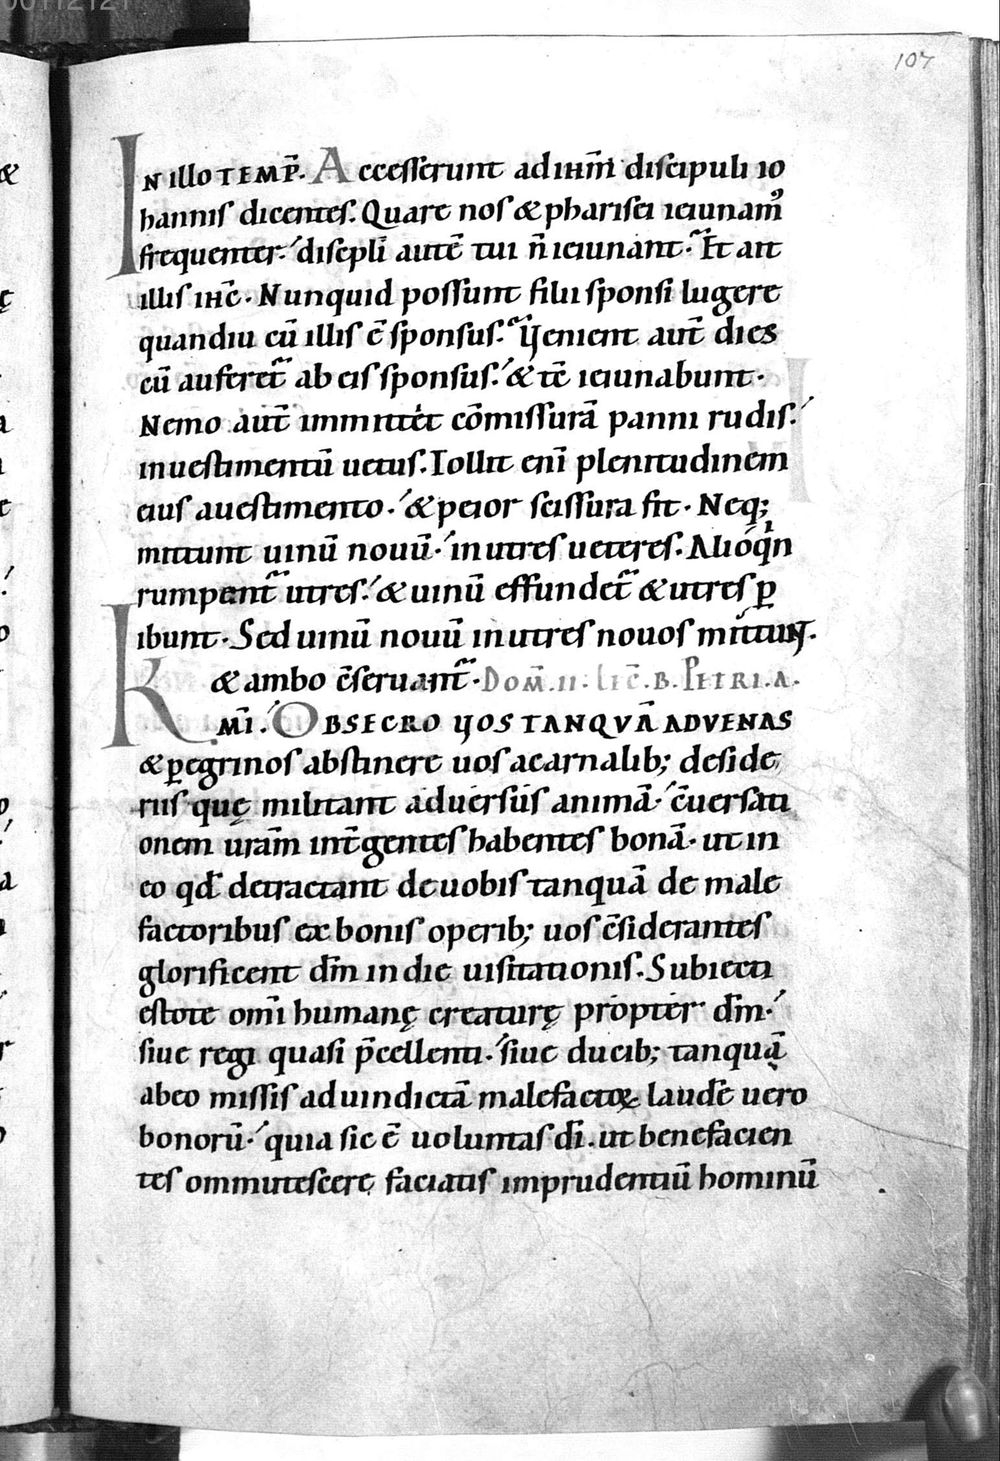 00112121
107
IN illo TEMP̄. Accesserunt ad ih̄m discipuli io
hannis dicentes. Quare nos & pharisei ieiunam᷒
frequenter. discipli autē tui n̄ ieiunant. Et ait
illis ih̄c. Nunquid possunt filii sponsi lugere
quandiu cū illis ē sponsus. Venient aut̄ dies
cū auferet̄ ab eis sponsus. & tc̄ ieiunabunt.
Nemo aut̄ immittet cōmissurā panni rudis.
in uestimentū uetus. Tollit eni̅ plenitudinem
eius a uestimento. & peior scissura fit. Neq;
mittunt uinū nouū. in utres ueteres. Alioq̇n
rumpent̄ utres. & uinū effundet̄ & utres ꝑ
ibunt. Sed uinū nouū in utres nouos mittuɴ̄.
& ambo c̄seruant̄. DOM̄.II. LEC̄. B. PETRI. A.
KMI̅. OBSECRO VOS TANQVĀ ADVENAS
& ꝑegrinos abstinere uos a carnalib; deside
riis quę militant aduersus animā. c̄uersati
onem ur̄am int̄ gentes habentes bonā. ut in
eo qd̄ detractant de uobis tanquā de male
factoribus ex bonis operib; uos c̄siderantes
glorificent dm̄ in die uisitationis. Subiecti
estote omi̅ humanę creaturę propter dm̄.
siue regi quasi p̄cellenti. siue ducib; tanquā
ab eo missis ad uindictā malefactoꝝ laudē uero
bonorū. quia sic ē uoluntas di̅. ut benefacien
tes ommutescere faciatis imprudentiū hominū